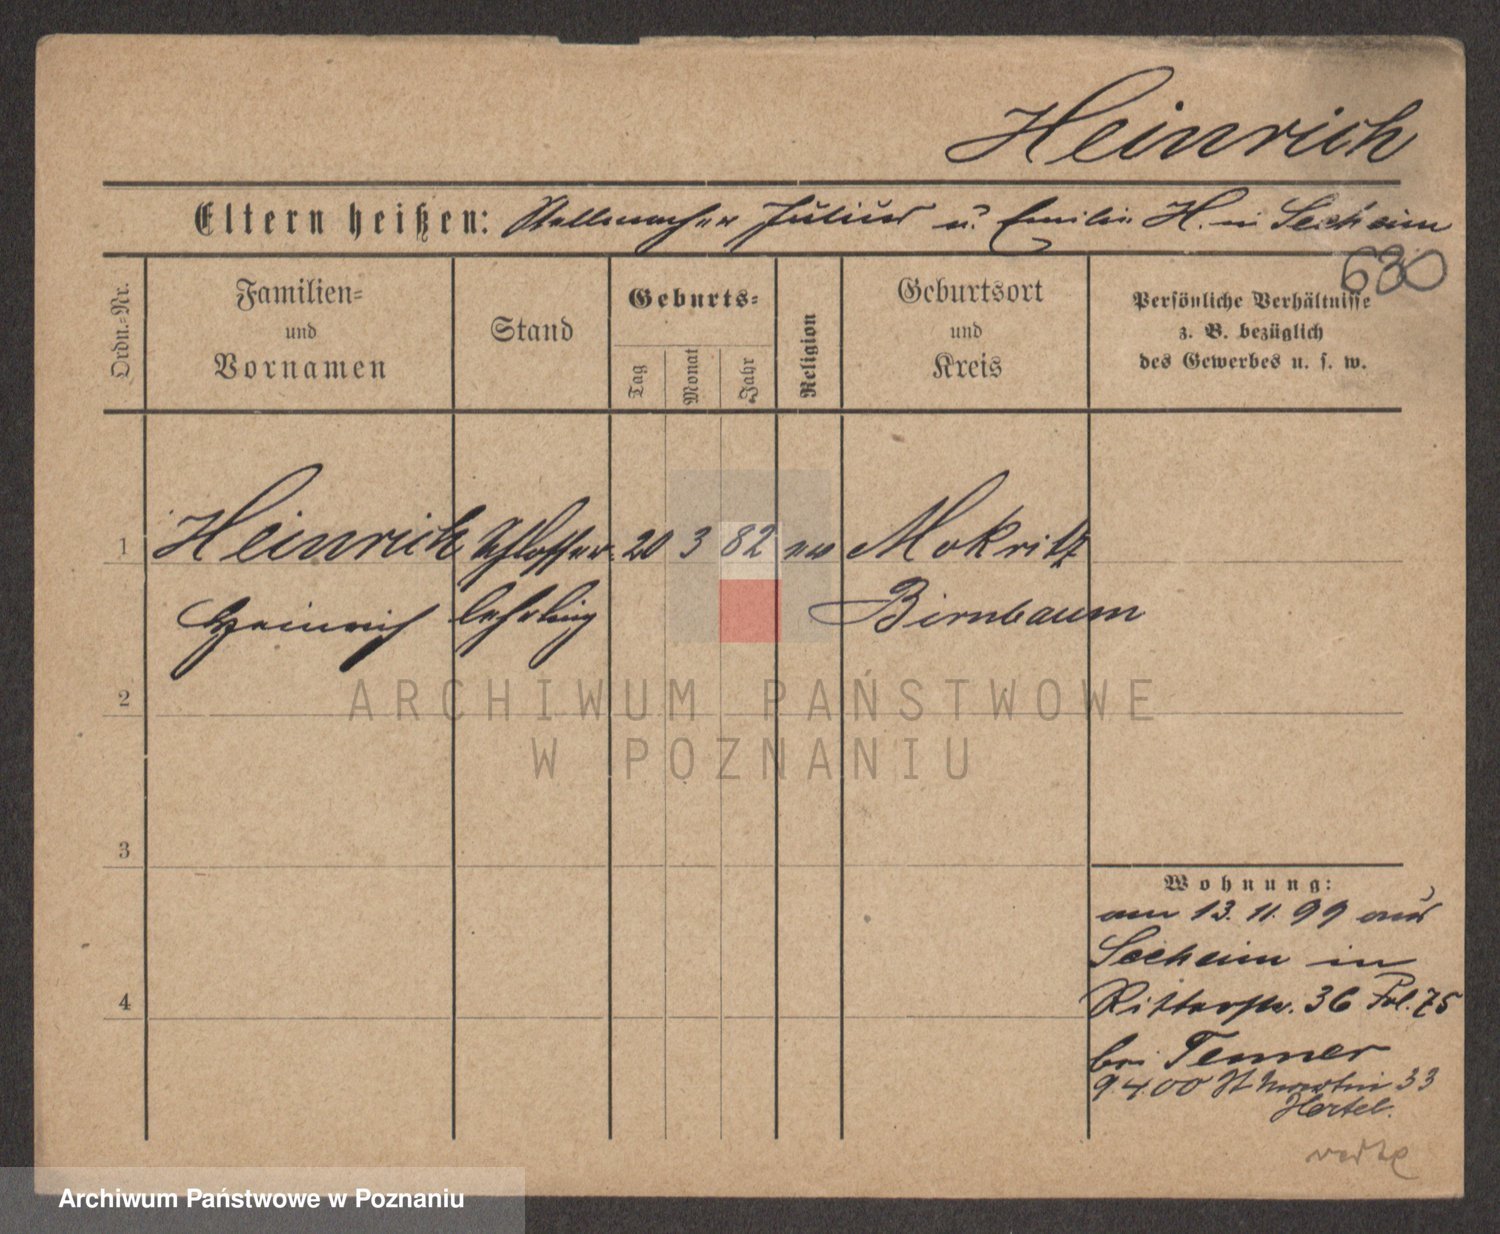 Heinrich
Eltern heißen: Stellmacher Julius u. Emilie H. in Seeheim
630
Ordn.=Nr.
Familien=
und
Vornamen
Stand
Geburts=
Tag
Monat
Jahr
Religion
Geburtsort
und
Kreis
Persönliche Verhältnisse
z. B. bezüglich
des Gewerbes u. s. w.
1 Heinrich Schlosser 20 3 82 ev Mokritz
Heinrich lehrling Birnbaum
2
ARCHIWUM PAŃSTWOWE
W POZNANIU
3
Wohnung:
am 13. 11. 99 aus
Seeheim in
4
Ritterstr. 36 Prl. 75
bei Tenner
9.4.00 St Martin 33
Hertel.
Archiwum Państwowe w Poznaniu